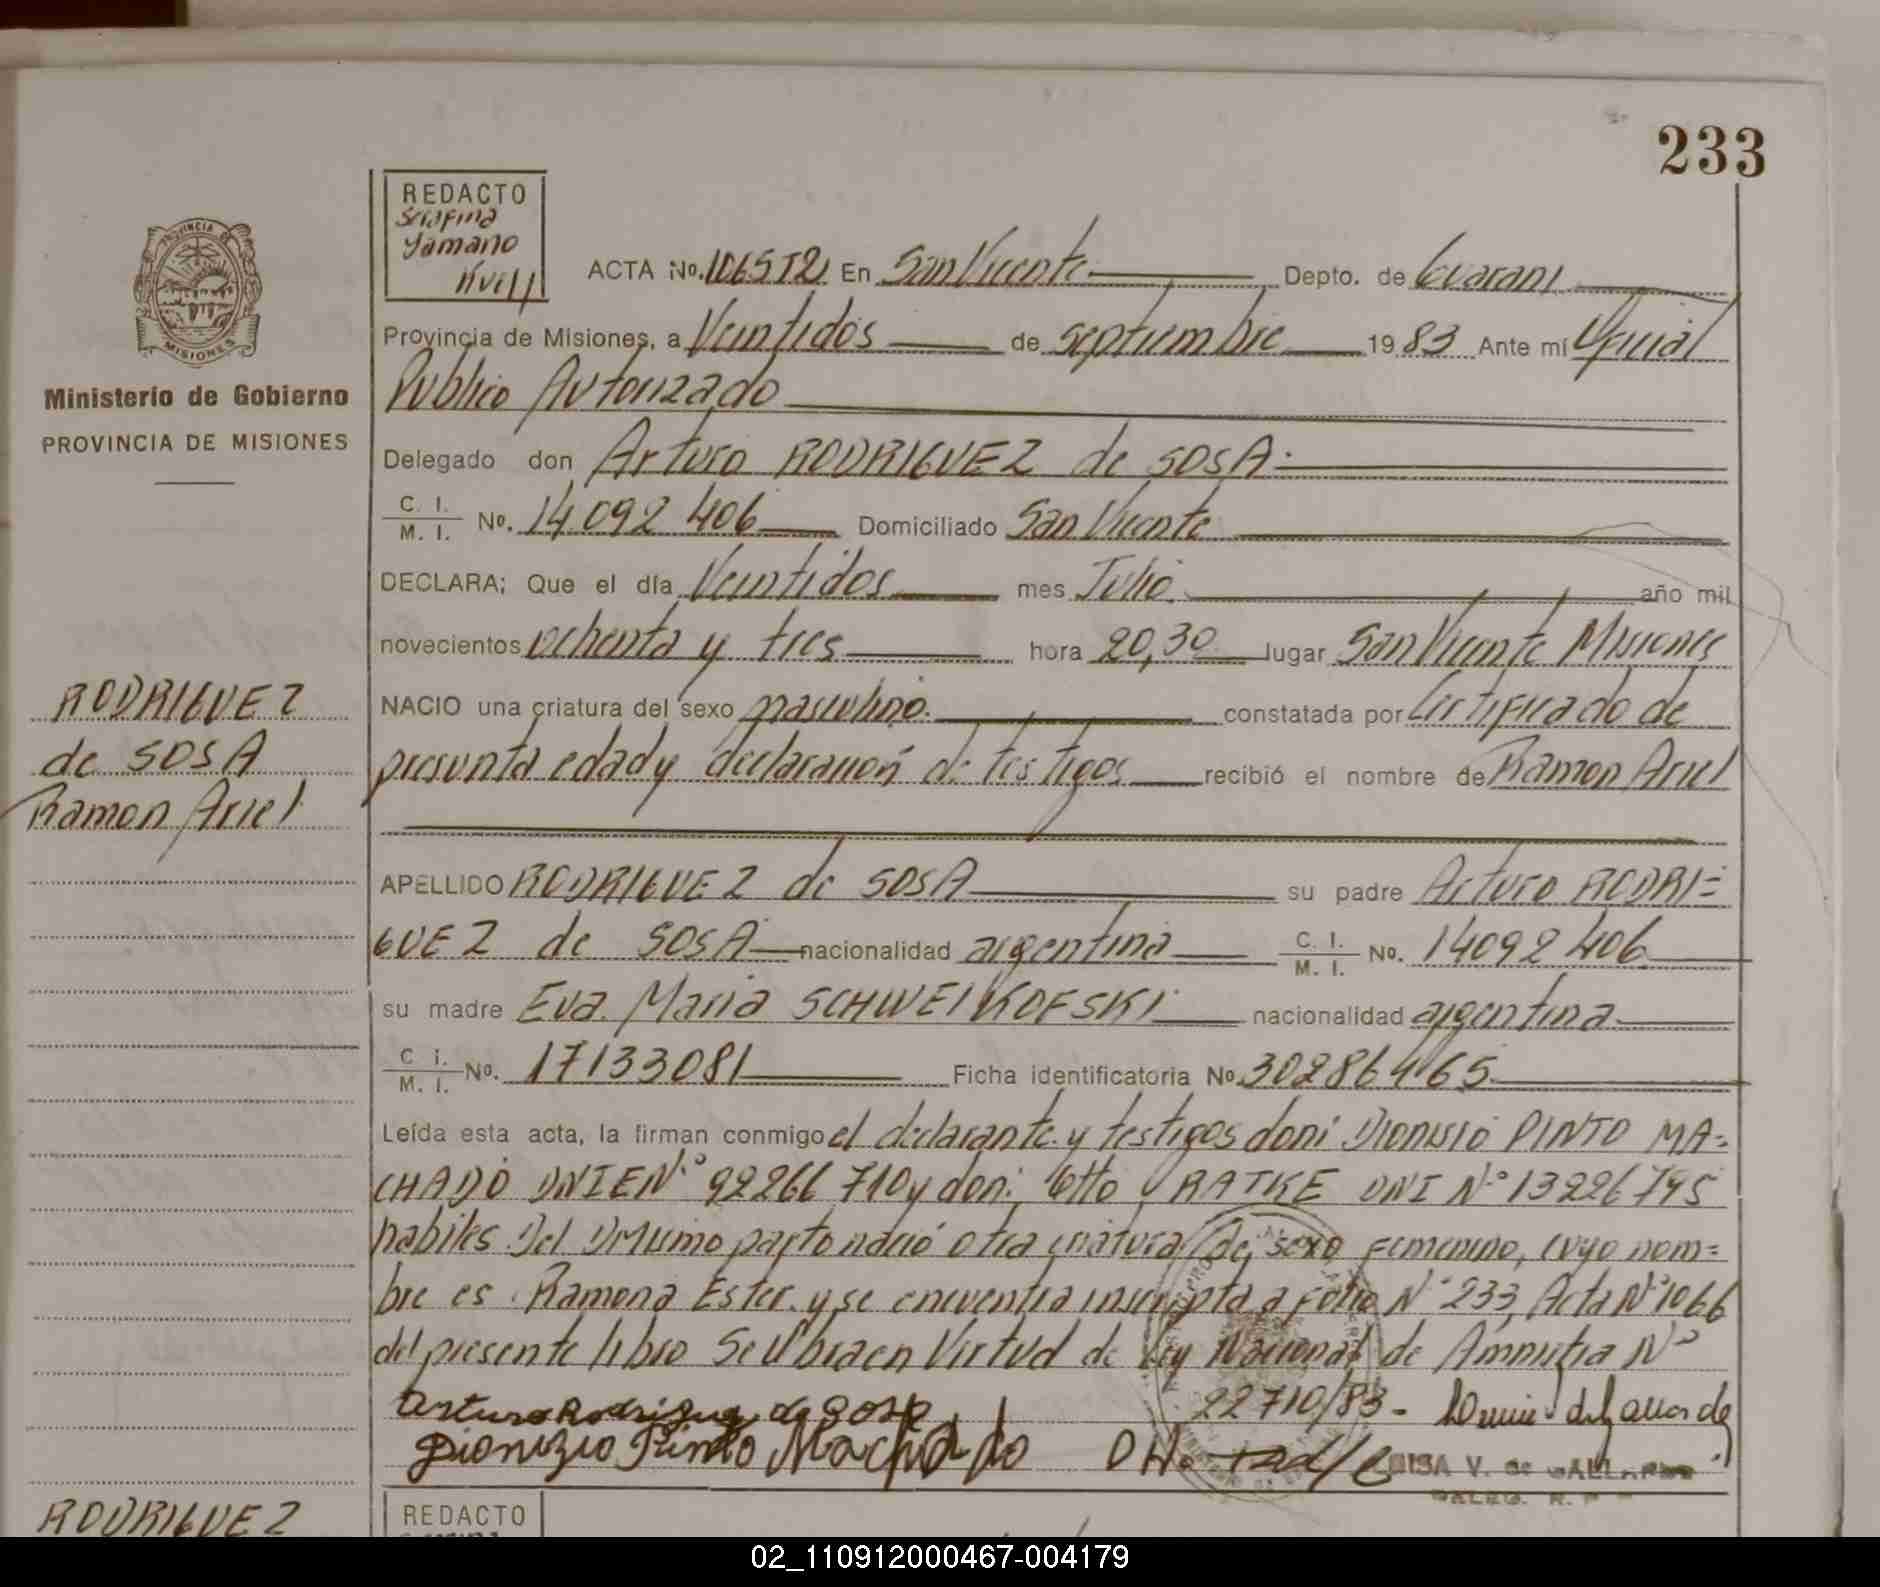 233
REDACTO
Serafina
Yamano
ACTA No. 1065T2 En San Vicente Depto. de Guarani
PROVINCIA DE
MISIONES
Provincia de Misiones, a Veintidos de septiembre 1983 Ante mí Oficial
Ministerio de Gobierno
Publico Autorizado
PROVINCIA DE MISIONES
Delegado don Arturo RODRIGUEZ de SOSA.
C. I.
M. I. No. 14.092 406 Domiciliado San Vicente
DECLARA; Que el día Veintidos mes Julio. año mil
novecientos ochenta y tres hora 20,30 lugar San Vicente Misiones
RODRIGUEZ
NACIO una criatura del sexo masculino. constatada por Certificado de
de SOSA
presunta edad y declaración de testigos recibió el nombre de Ramon Ariel
Ramon Ariel
APELLIDO RODRIGUEZ de SOSA su padre Arturo RODRI=
GUEZ de SOSA nacionalidad argentina C. I.
M. I. No. 14092 406
su madre Eva. Maria SCHWEIKOFSKI nacionalidad argentina
C i.
M. I. No. 17133081 Ficha identificatoria No. 30286465
Leída esta acta, la firman conmigo el declarante y testigos don: Dionisio PINTO MA=
CHADO DNIE N° 92266 710 y don: Otto RATKE DNI N° 13226795
habiles. Del mismo parto nació otra criatura de sexo femenino, cuyo nom=
bre es Ramona Ester. y se encuentra inscripta a folio N° 233, Acta N° 1066
del presente libro Se labra en Virtud de Ley Nacional de Amnistia N°
22710/83-
Arturo Rodriguez de Sosa
Dionizio Pinto Machado Otto
LUISA V. de GALLARDO
REDACTO
RODRIGUEZ
02_110912000467-004179